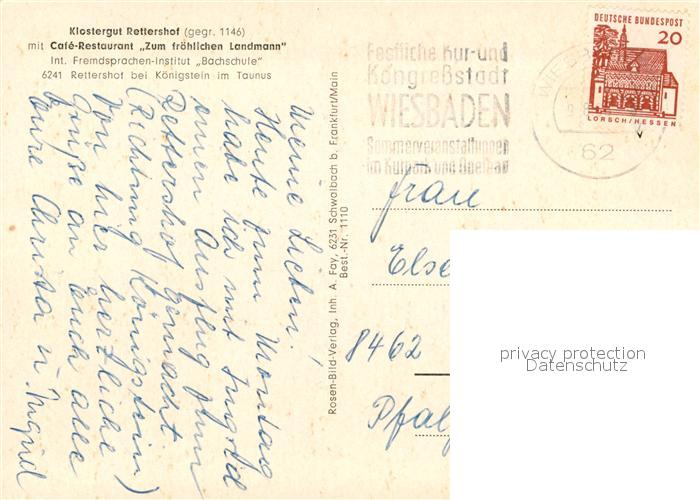 Klostergut Rettershof (gegr. 1146)
mit Café-Restaurant „Zum fröhlichen Landmann"
Int. Fremdsprachen-Institut „Bachschule"
6241 Rettershof bei Königstein im Taunus
Meine Lieben!
Heute zum Montag
habe ich mit Ingrid
einen Ausflug zum
Rettershof gemacht.
(Richtung Königstein)
Von hier herzliche
Grüße an Euch alle
Eure Christa u. Ingrid
Rosen-Bild-Verlag, Inh. A. Fay, 6231 Schwalbach b. Frankfurt/Main
Best.-Nr. 1110
Festliche Kur-und
Kongreßstadt
WIESBADEN
Sommerveranstaltungen
im Kurpark und Opelbad
WIESB
62
DEUTSCHE BUNDESPOST
20
LORSCH/HESSEN
Frau
Else
8462
Pfal
privacy protection
Datenschutz